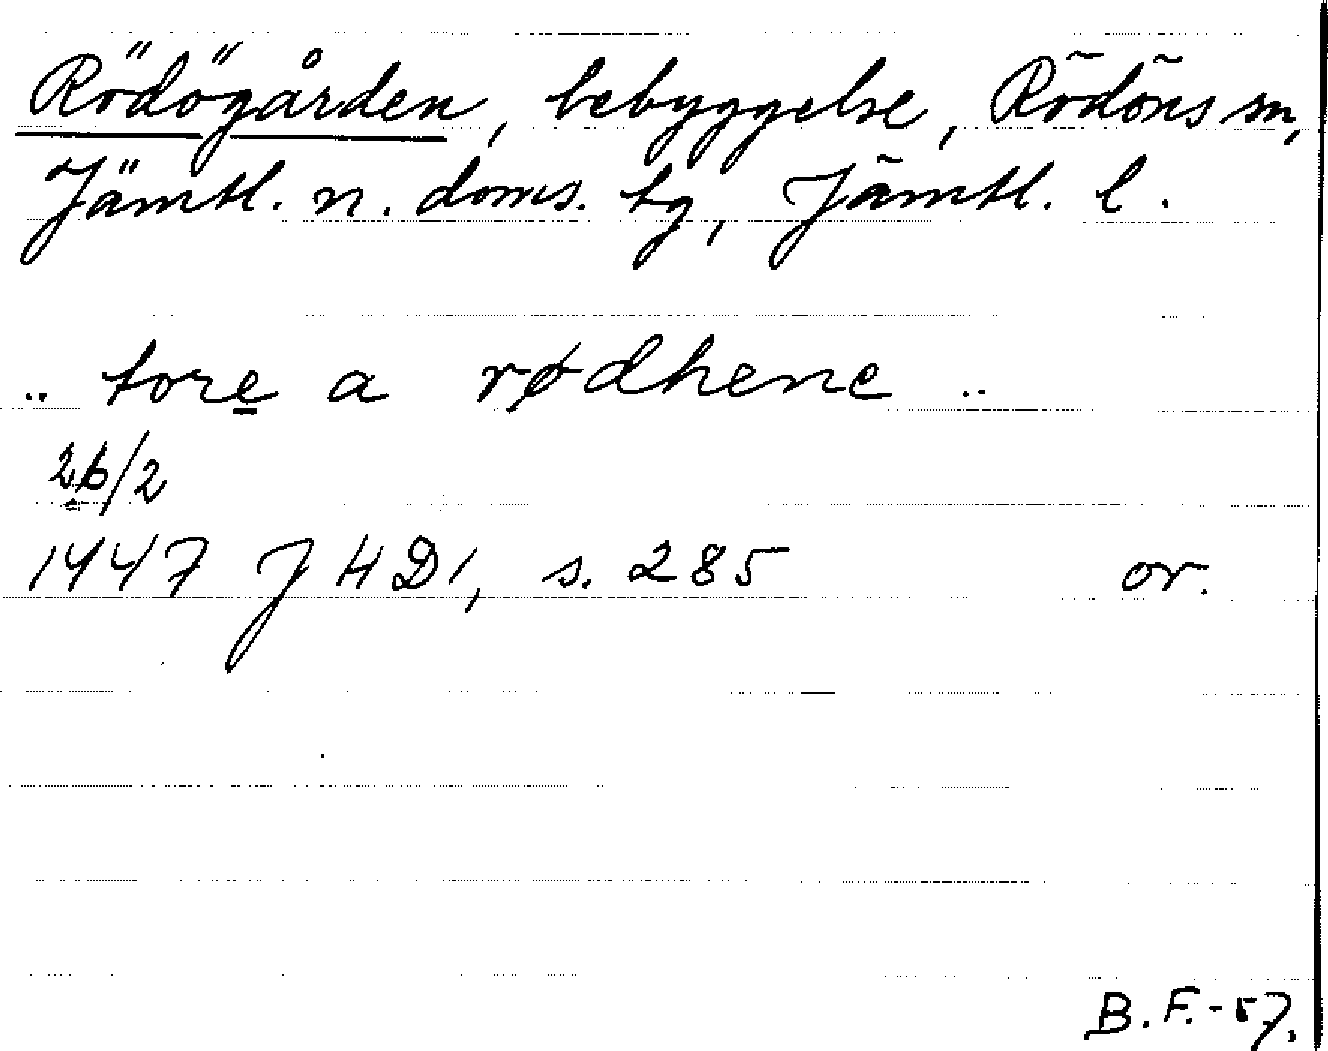 Rödögården, bebyggelse, Rödöns sn,
Jämtl. n. doms. tg, Jämtl. l.
.. tore a rødhene ..
26/2
1447 JHD1, s. 285 or.
B.F.-57.